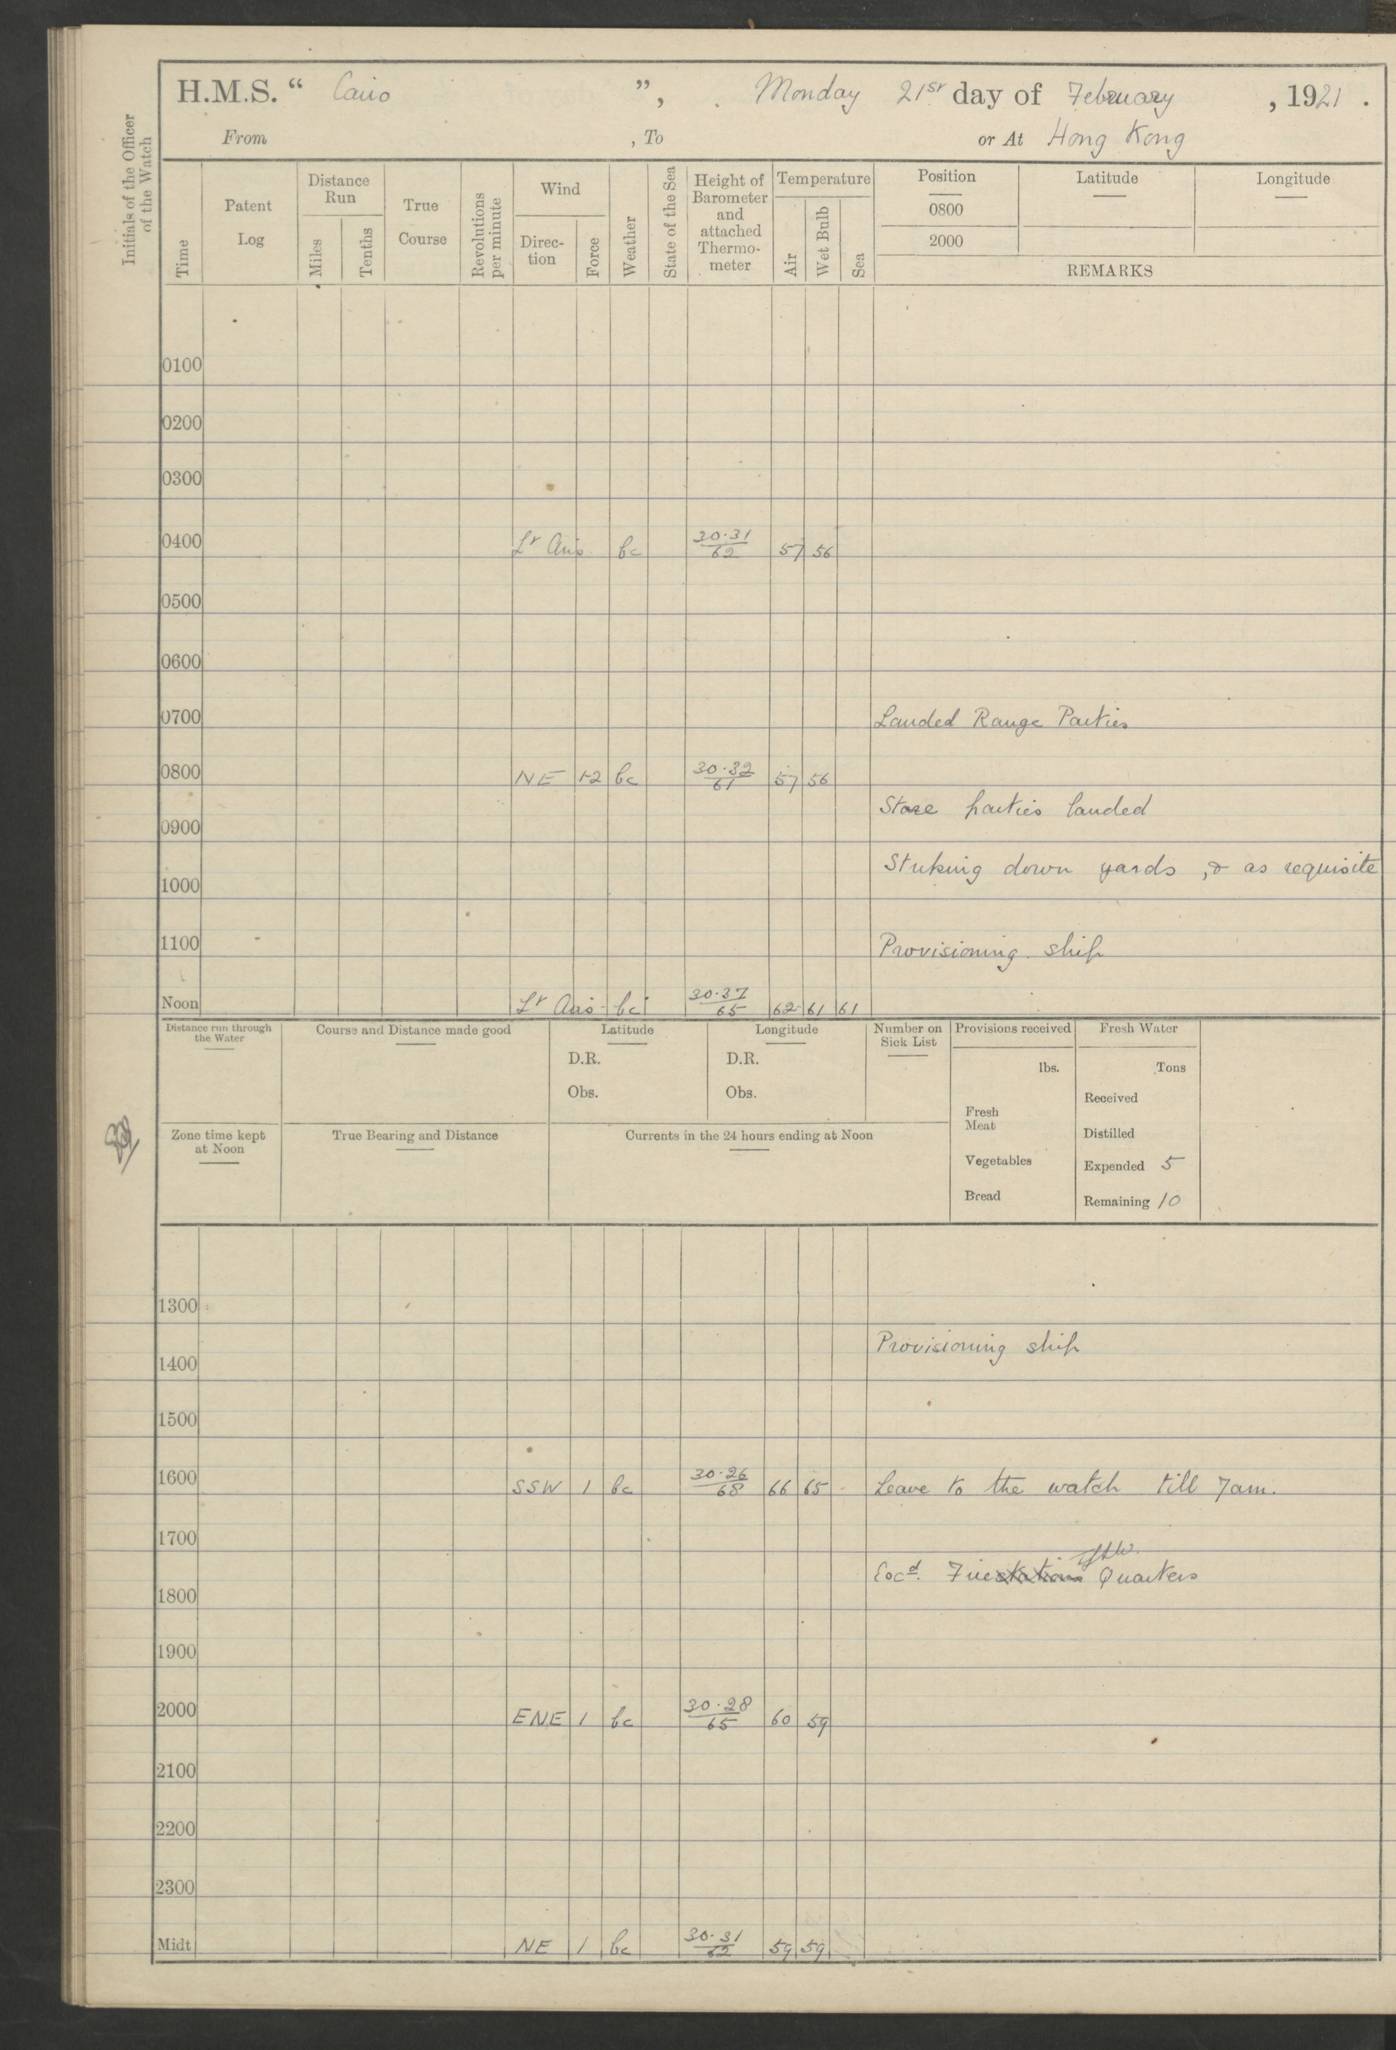 H.M.S. “ Cairo ”, Monday 21st day of February, 1921.
From , To or At Hong Kong
Initials of the Officer of the Watch
Time
Patent Log
Distance Run
Miles
Tenths
True Course
Revolutions per minute
Wind
Direc-tion
Force
Weather
State of the Sea
Height of Barometer and attached Thermo-meter
Temperature
Air
Wet Bulb
Sea
Position
0800
2000
Latitude
Longitude
REMARKS
0100
0200
0300
0400 Lt Airs bc 30·31/62 57 56
0500
0600
0700 Landed Range Parties
0800 NE 1-2 bc 30·32/61 57 56
Store parties landed
0900
Striking down yards, & as requisite
1000
1100 Provisioning ship
Noon Lt Airs bc 30·37/65 62 61 61
Distance run through the Water
Course and Distance made good
Latitude
D.R.
Obs.
Longitude
D.R.
Obs.
Number on Sick List
Provisions received
lbs.
Fresh Meat
Vegetables
Bread
Fresh Water
Tons
Received
Distilled
Expended 5
Remaining 10
Zone time kept at Noon
True Bearing and Distance
Currents in the 24 hours ending at Noon
1300
Provisioning ship
1400
1500
1600 SSW 1 bc 30·26/68 66 65 Leave to the watch till 7am.
1700
Excd. Fire stations Quarters
1800
1900
2000 ENE 1 bc 30·28/65 60 59
2100
2200
2300
Midt NE 1 bc 30·31/62 59 59